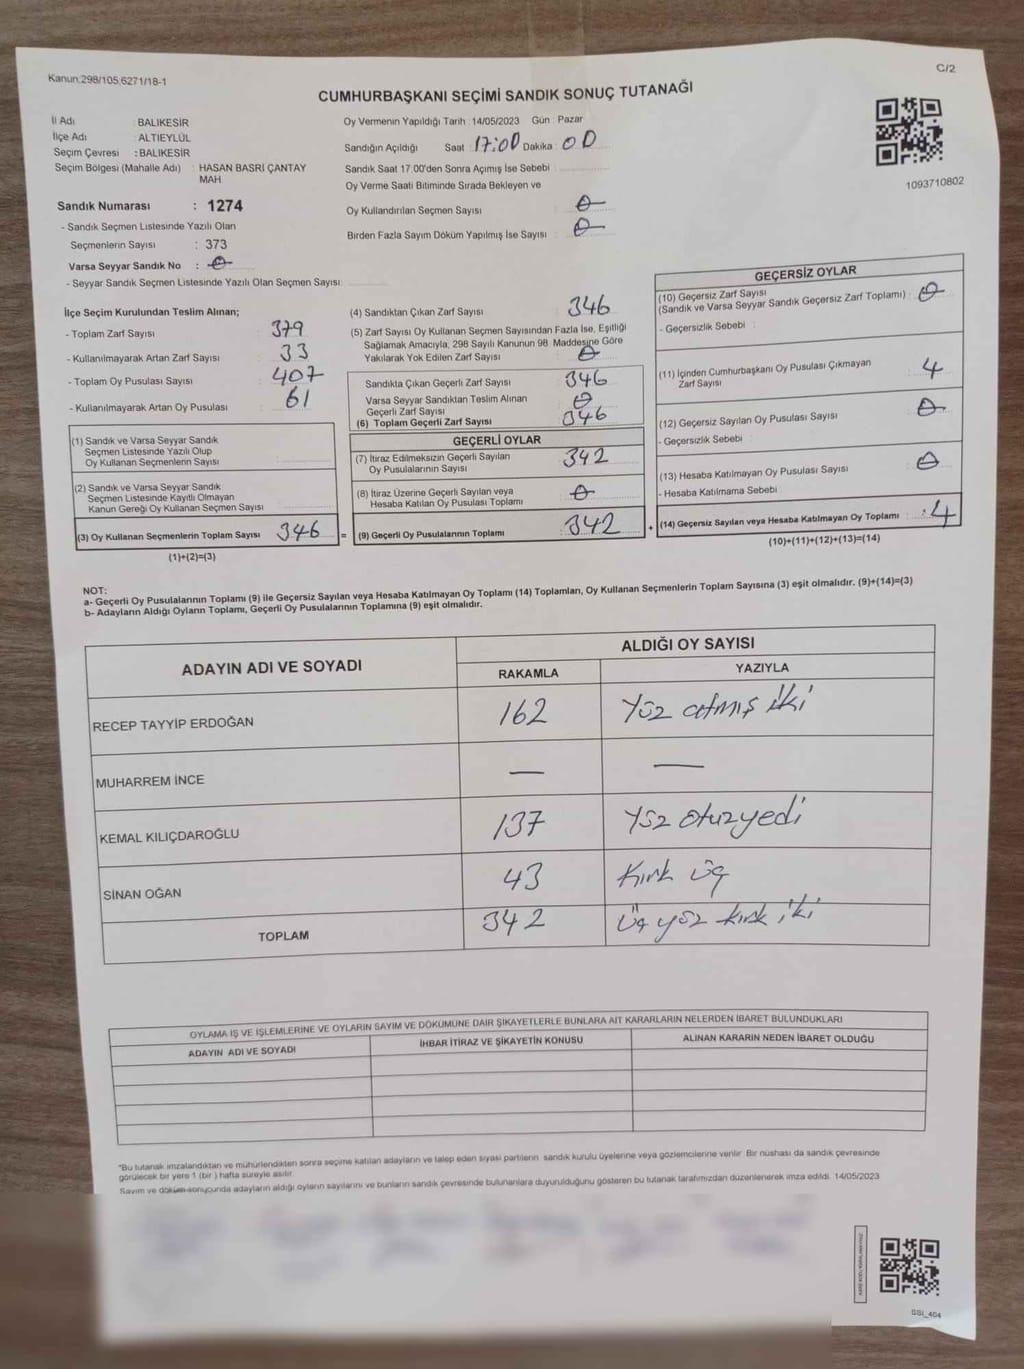 Kanun.298/105,6271/18-1
C/2
CUMHURBAŞKANI SEÇİMİ SANDIK SONUÇ TUTANAĞI
İl Adı : BALIKESİR
İlçe Adı : ALTIEYLÜL
Seçim Çevresi : BALIKESİR
Seçim Bölgesi (Mahalle Adı) : HASAN BASRİ ÇANTAY
MAH
Sandık Numarası : 1274
- Sandık Seçmen Listesinde Yazılı Olan
Seçmenlerin Sayısı : 373
Varsa Seyyar Sandık No : 0
- Seyyar Sandık Seçmen Listesinde Yazılı Olan Seçmen Sayısı:
Oy Vermenin Yapıldığı Tarih : 14/05/2023 Gün : Pazar
Sandığın Açıldığı Saat : 17:00 Dakika : 00
Sandık Saat 17.00'den Sonra Açımış İse Sebebi :
Oy Verme Saati Bitiminde Sırada Bekleyen ve
Oy Kullandırılan Seçmen Sayısı : 0
Birden Fazla Sayım Döküm Yapılmış İse Sayısı : 0
1093710802
İlçe Seçim Kurulundan Teslim Alınan;
- Toplam Zarf Sayısı : 379
- Kullanılmayarak Artan Zarf Sayısı : 33
- Toplam Oy Pusulası Sayısı : 407
- Kullanılmayarak Artan Oy Pusulası : 61
(1) Sandık ve Varsa Seyyar Sandık
Seçmen Listesinde Yazılı Olup
Oy Kullanan Seçmenlerin Sayısı :
(2) Sandık ve Varsa Seyyar Sandık
Seçmen Listesinde Kayıtlı Olmayan
Kanun Gereği Oy Kullanan Seçmen Sayısı :
(3) Oy Kullanan Seçmenlerin Toplam Sayısı : 346 =
(1)+(2)=(3)
(4) Sandıktan Çıkan Zarf Sayısı : 346
(5) Zarf Sayısı Oy Kullanan Seçmen Sayısından Fazla İse, Eşitliği
Sağlamak Amacıyla, 298 Sayılı Kanunun 98. Maddesine Göre
Yakılarak Yok Edilen Zarf Sayısı : 0
Sandıkta Çıkan Geçerli Zarf Sayısı : 346
Varsa Seyyar Sandıktan Teslim Alınan
Geçerli Zarf Sayısı : 0
(6) Toplam Geçerli Zarf Sayısı : 346
GEÇERLİ OYLAR
(7) İtiraz Edilmeksizin Geçerli Sayılan
Oy Pusulalarının Sayısı : 342
(8) İtiraz Üzerine Geçerli Sayılan veya
Hesaba Katılan Oy Pusulası Toplamı : 0
(9) Geçerli Oy Pusulalarının Toplamı : 342 +
GEÇERSİZ OYLAR
(10) Geçersiz Zarf Sayısı
(Sandık ve Varsa Seyyar Sandık Geçersiz Zarf Toplamı) : 0
- Geçersizlik Sebebi :
(11) İçinden Cumhurbaşkanı Oy Pusulası Çıkmayan
Zarf Sayısı : 4
(12) Geçersiz Sayılan Oy Pusulası Sayısı : 0
- Geçersizlik Sebebi :
(13) Hesaba Katılmayan Oy Pusulası Sayısı : 0
- Hesaba Katılmama Sebebi :
(14) Geçersiz Sayılan veya Hesaba Katılmayan Oy Toplamı : 4
(10)+(11)+(12)+(13)=(14)
NOT:
a- Geçerli Oy Pusulalarının Toplamı (9) ile Geçersiz Sayılan veya Hesaba Katılmayan Oy Toplamı (14) Toplamları, Oy Kullanan Seçmenlerin Toplam Sayısına (3) eşit olmalıdır. (9)+(14)=(3)
b- Adayların Aldığı Oyların Toplamı, Geçerli Oy Pusulalarının Toplamına (9) eşit olmalıdır.
ADAYIN ADI VE SOYADI
ALDIĞI OY SAYISI
RAKAMLA YAZIYLA
RECEP TAYYİP ERDOĞAN 162 Yüz atmış iki
MUHARREM İNCE — —
KEMAL KILIÇDAROĞLU 137 Yüz otuzyedi
SİNAN OĞAN 43 Kırk üç
TOPLAM 342 Üç yüz kırk iki
OYLAMA İŞ VE İŞLEMLERİNE VE OYLARIN SAYIM VE DÖKÜMÜNE DAİR ŞİKAYETLERLE BUNLARA AİT KARARLARIN NELERDEN İBARET BULUNDUKLARI
ADAYIN ADI VE SOYADI İHBAR İTİRAZ VE ŞİKAYETİN KONUSU ALINAN KARARIN NEDEN İBARET OLDUĞU
"Bu tutanak imzalandıktan ve mühürlendikten sonra seçime katılan adayların ve talep eden siyasi partilerin sandık kurulu üyelerine veya gözlemcilerine verilir. Bir nüshası da sandık çevresinde
görülecek bir yere 1 (bir) hafta süreyle asılır.
Sayım ve döküm sonucunda adayların aldığı oyların sayılarını ve bunların sandık çevresinde bulunanlara duyurulduğunu gösteren bu tutanak tarafımızdan düzenlenerek imza edildi. 14/05/2023
SSI_404